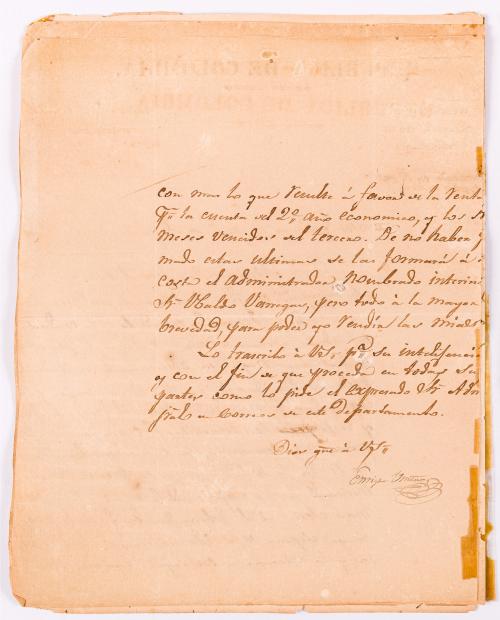 REPUBLICA DE COLOMBIA
REPUBLICA DE COLOMBIA
con mas lo que resulte à favor de la renta
la cuenta del 2º año economico, y los
meses vencidos del tercero. De no haber
mado estas ultimas se las formará à
costa el administrador nombrado interin
Sr Ubaldo Vanegas, pero todo à la mayor
brevedad, para poder yo rendir las mias
Lo trascribo à VS. pª su intelijencia
y con el fin de que proceda en todas su
partes como lo pide el expresado Sr Admor
jral de Correos de este departamento.
Dios gue à VS